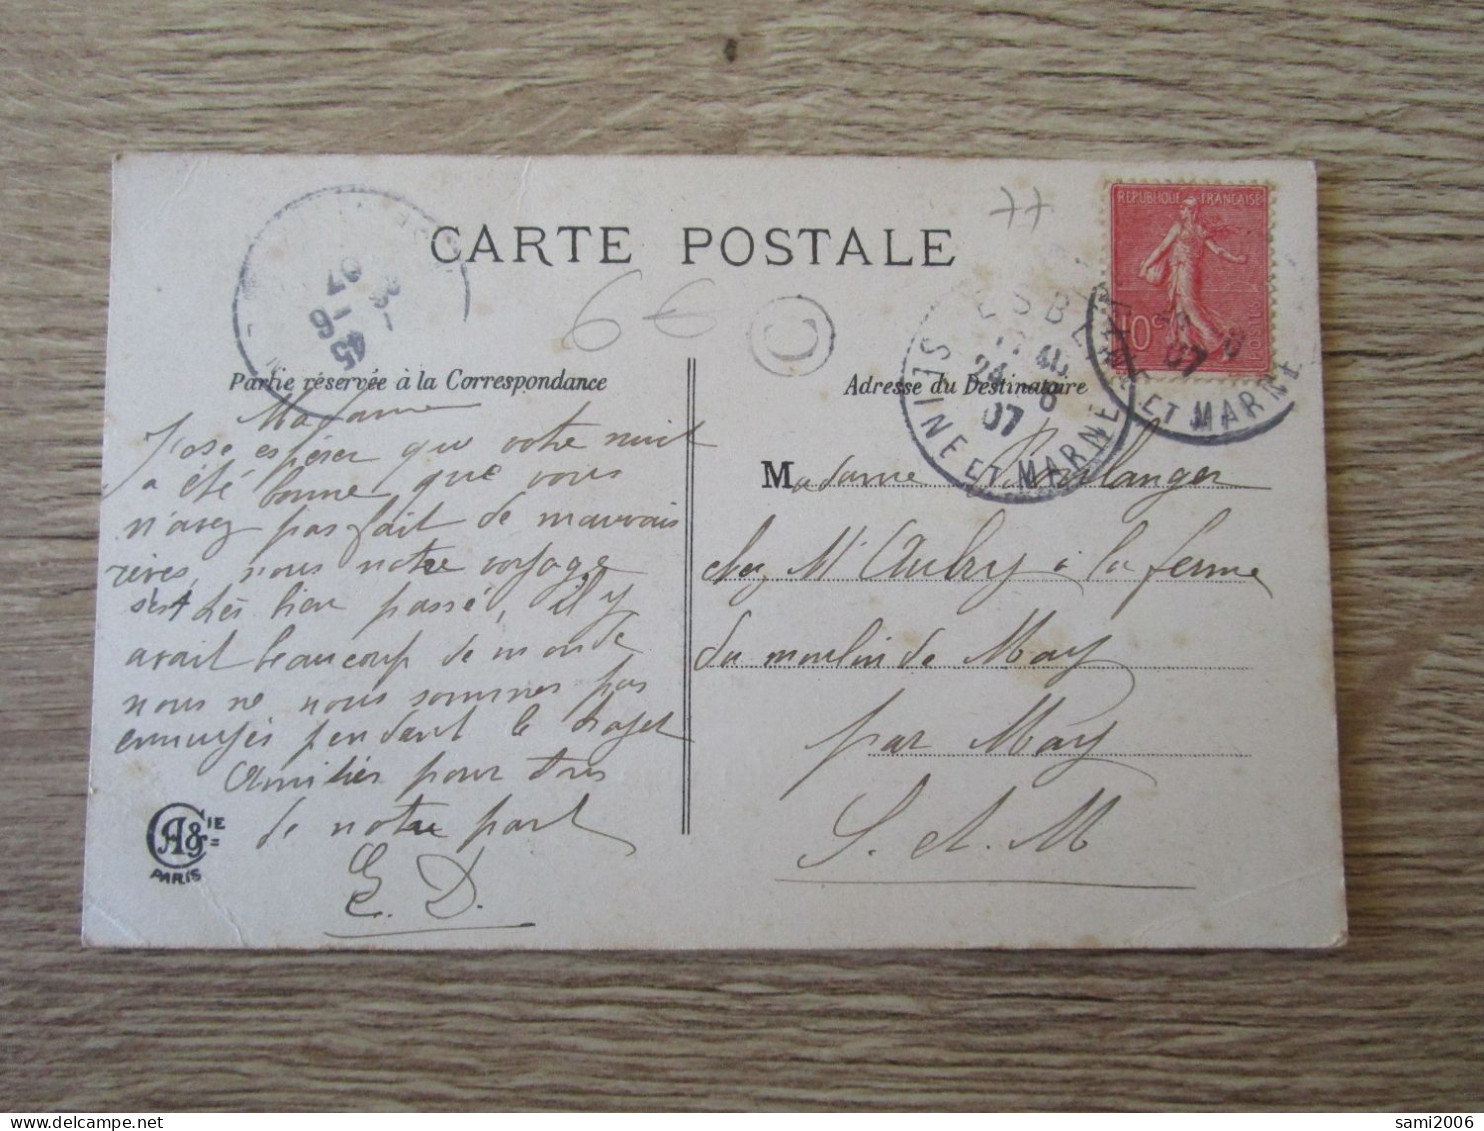 77
CARTE POSTALE
RÉPUBLIQUE FRANÇAISE
10c
POSTES
ESBLY
24 8
07
SEINE ET MARNE
ET MARNE
07
07
45
66
C
Partie réservée à la Correspondance
Adresse du Destinataire
Madame
J'ose espérer que votre nuit
a été bonne que vous
n'avez pas fait de mauvais
rêves, nous notre voyage
s'est très bien passé, il y
avait beaucoup de monde
nous ne nous sommes pas
ennuyés pendant le trajet
Amitiés pour tous
de notre part
E. D.
Madame Boulanger
chez Mr Aubry à la ferme
du moulin de May
par May
S. et M.
CA& IE
PARIS
sami2006